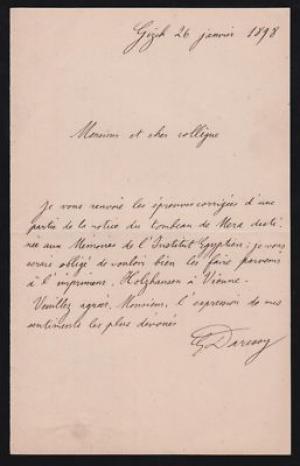 Gizeh 26 janvier 1898
Monsieur et cher collègue
Je vous renvoie les épreuves corrigées d'une
partie de la notice du tombeau de Mera desti-
née aux Mémoires de l'Institut Egyptien; je vous
serai obligé de vouloir bien les faire parvenir
à l'imprimeur, Holzhausen à Vienne.
Veuillez agréer, Monsieur, l'expression de mes
sentiments les plus dévoués
G Daressy